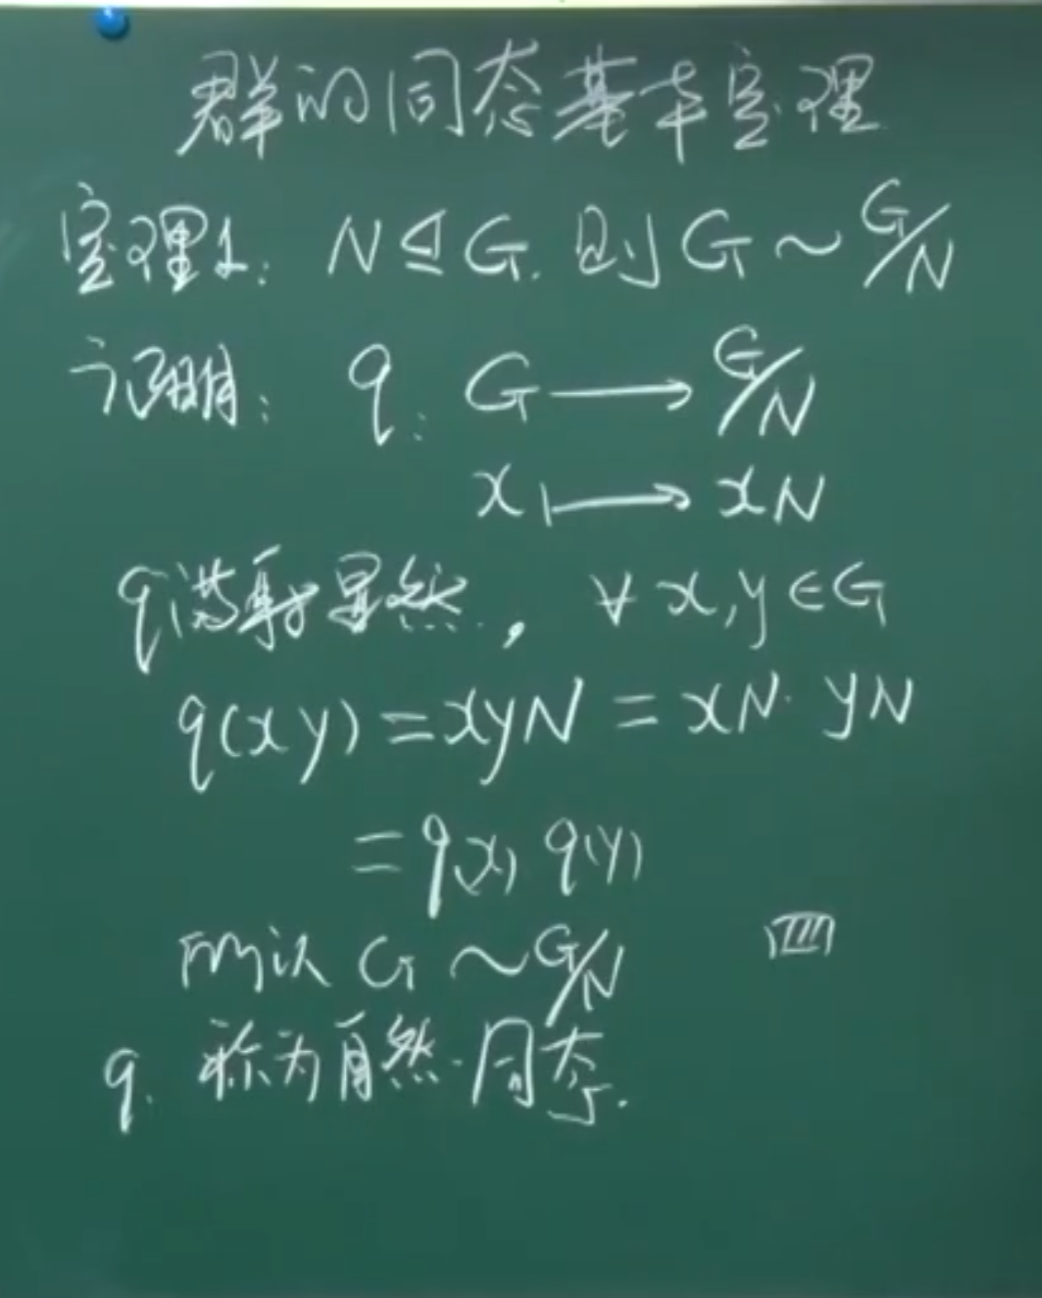 群的同态基本定理
定理1: N⊴G. 则 G ~ G/N
证明: q: G ⟶ G/N
x ⟼ xN
q满射显然, ∀ x,y ∈ G
q(xy) = xyN = xN · yN
= q(x) q(y)
所以 G ~ G/N
q. 称为自然同态.